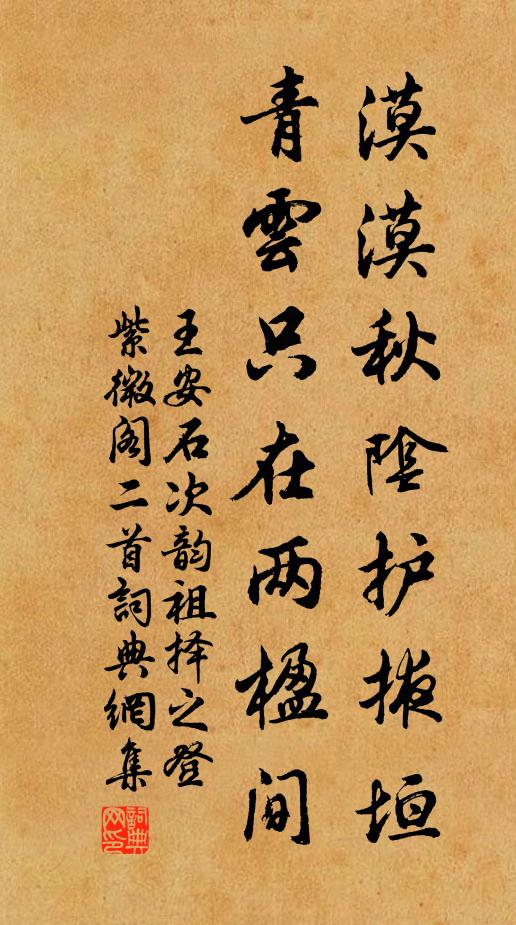 漠漠秋陰护掖垣
青雲只在两楹间
王安石次韵祖择之登
紫微阁二首詞典網集
詞典
网印